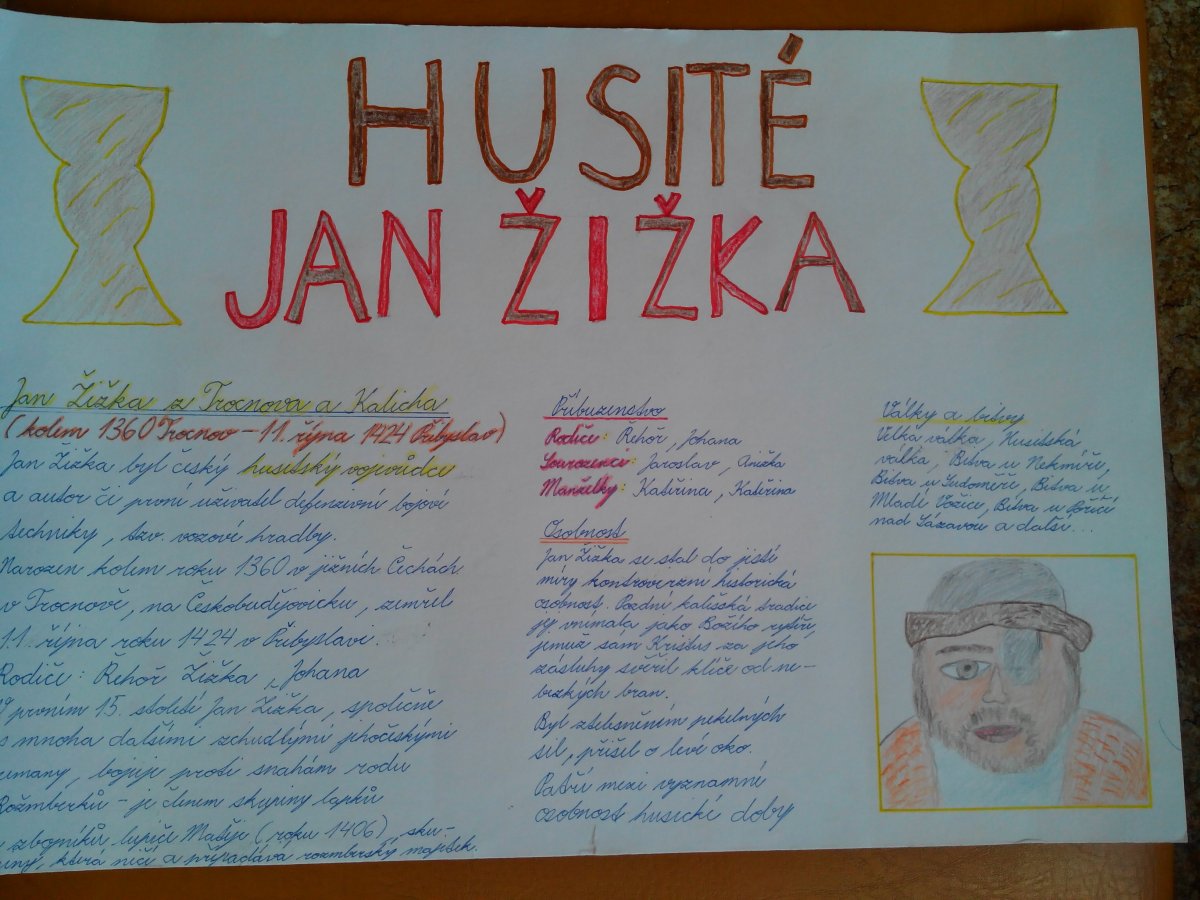 HUSITÉ
JAN ŽIŽKA
Jan Žižka z Trocnova a Kalicha
(kolem 1360 Trocnov – 11. října 1424 Přibyslav)
Jan Žižka byl český husitský vojevůdce
a autor či první uživatel defenzivní bojové
techniky, tzv. vozové hradby.
Narozen kolem roku 1360 v jižních Čechách
v Trocnově, na Českobudějovicku, zemřel
11. října roku 1424 v Přibyslavi.
Rodiče: Řehoř Žižka, Johana
prvním 15. století Jan Žižka, společně
s mnoha dalšími zchudlými jihočeskými
zemany, bojuje proti snahám rodu
Rožmberků – je členem skupiny lapků
zbojníků, lupiče Matěje (roku 1406), sku-
piny, která ničí a přepadává rožmberský majetek.
Příbuzenstvo
Rodiče: Řehoř, Johana
Sourozenci: Jaroslav, Anežka
Manželky: Kateřina, Kateřina
Osobnost
Jan Žižka se stal do jisté
míry kontroverzní historická
osobnost. Pozdní kališská tradice
jej vnímala jako Božího rytíře,
jemuž sám Kristus za jeho
zásluhy svěřil klíče od ne-
beských bran.
Byl ztělesněním pekelných
sil, přišel o levé oko.
Patří mezi významné
osobnost husické doby
Války a bitvy
Velká válka, Husitská
válka, Bitva u Nekmíře,
Bitva u Sudoměře, Bitva u
Mladé Vožice, Bitva u Poříčí
nad Sázavou a další...